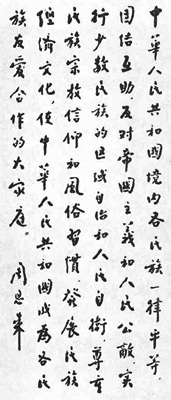 中華人民共和國境内各民族一律平等,
团结互助,反对帝國主義和人民公敵,实
行少数民族的区域自治和人民自衛,尊重
民族宗教信仰和風俗習慣,發展民族
經濟文化,使中華人民共和國成為各民
族友愛合作的大家庭。 周恩來